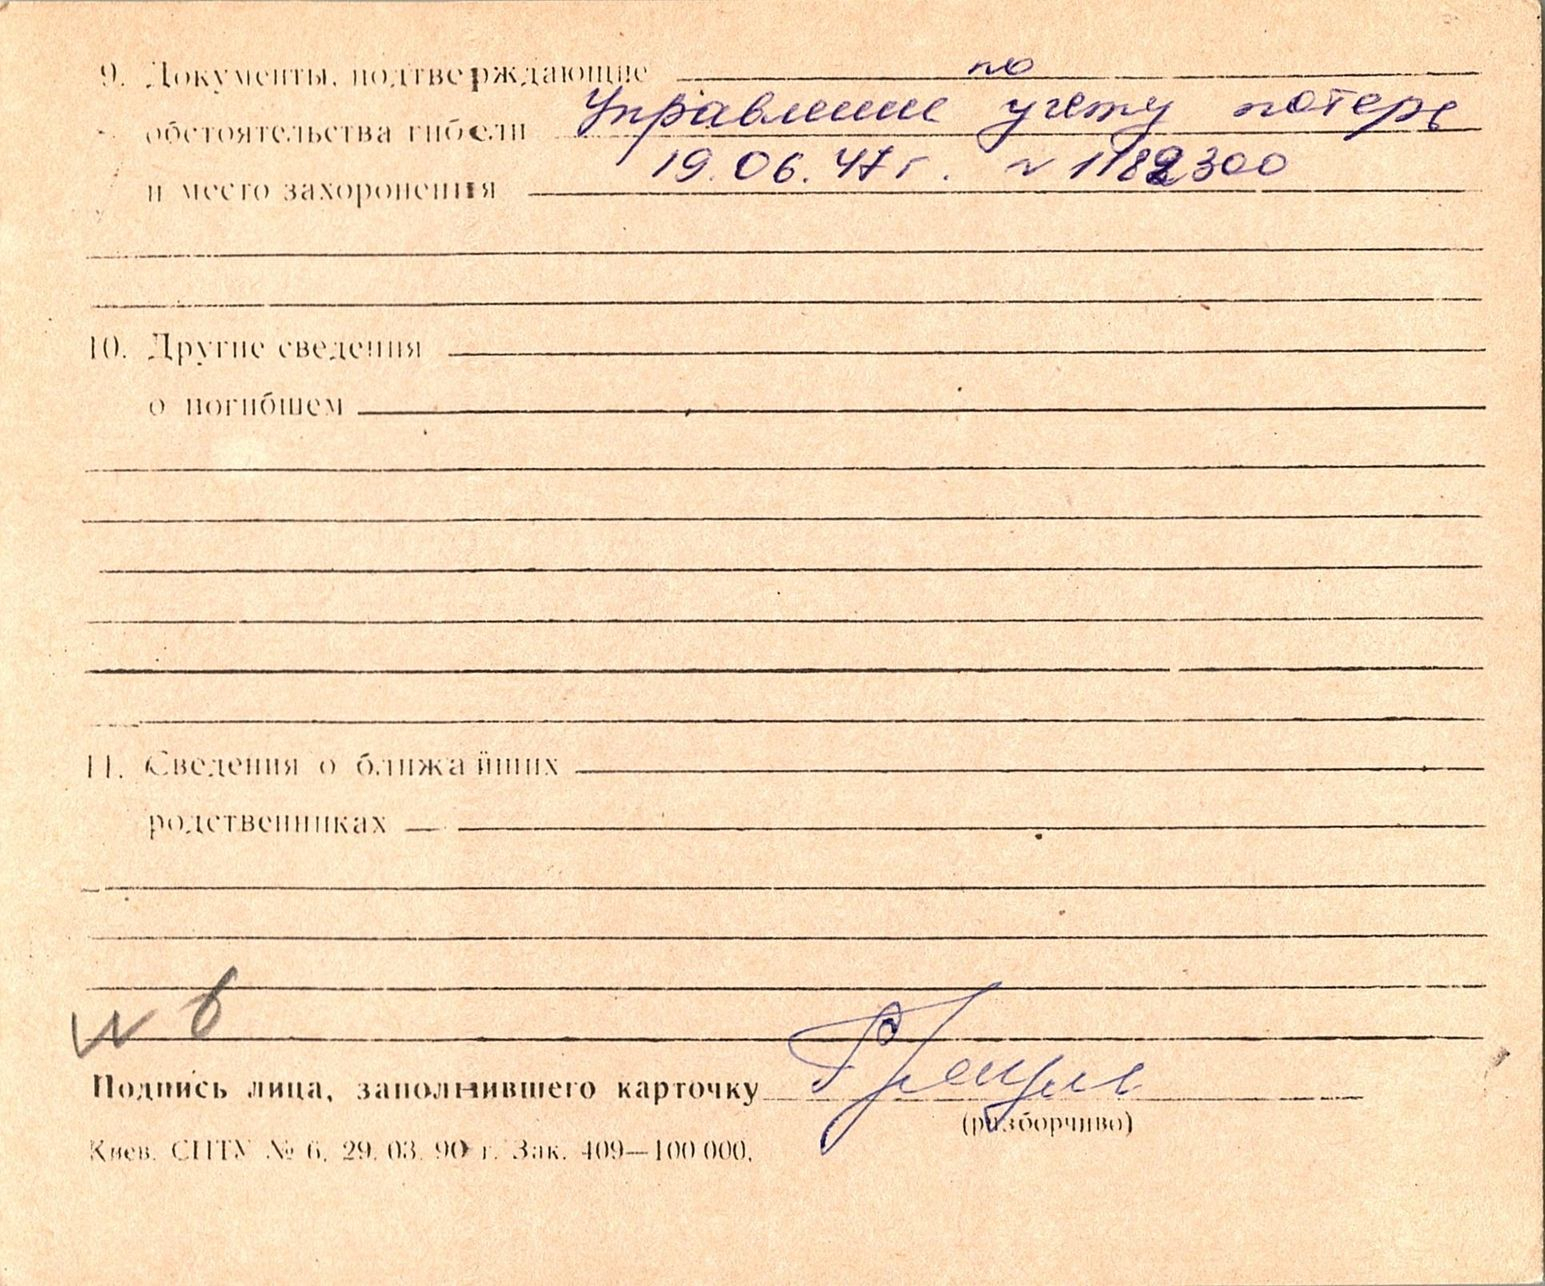 9. Документы, подтверждающие по
обстоятельства гибели Управление учету потерь
и место захоронения 19.06.47 г. № 1182300
10. Другие сведения
о погибшем
11. Сведения о ближайших
родственниках
№ 6
Подпись лица, заполнившего карточку
(разборчиво)
Киев. СПТУ № 6. 29. 03. 90 г. Зак. 409—100 000.